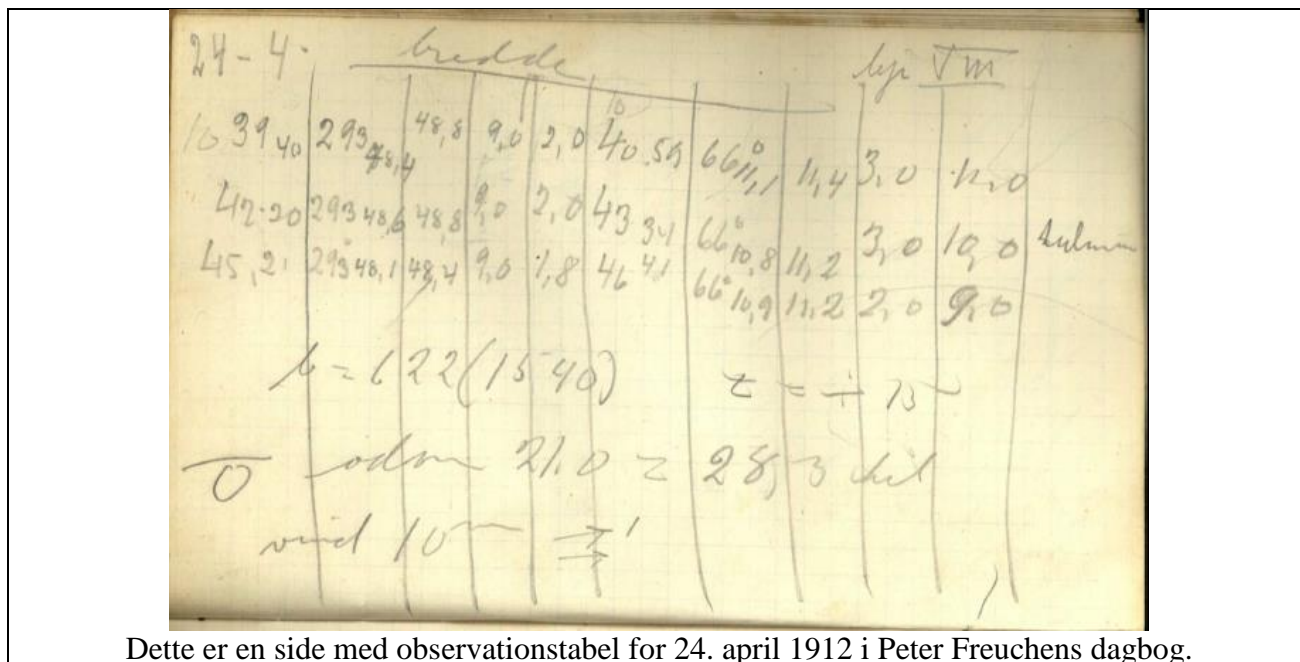 24-4. bredde
10 39 40 293 48,4 48,8 9,0 2,0 10 40 59 66° 11,1 11,4 3,0 11,0
42.20 293 48,6 48,8 9,0 2,0 43 34 66° 10,8 11,2 3,0 10,0
45,21 293° 48,1 48,4 9,0 1,8 46 41 66° 10,9 11,2 2,0 9,0
b = 622 (1540) t = ÷ 15
odom 21.0 = 28,3 kil
vind 10 m
Dette er en side med observationstabel for 24. april 1912 i Peter Freuchens dagbog.